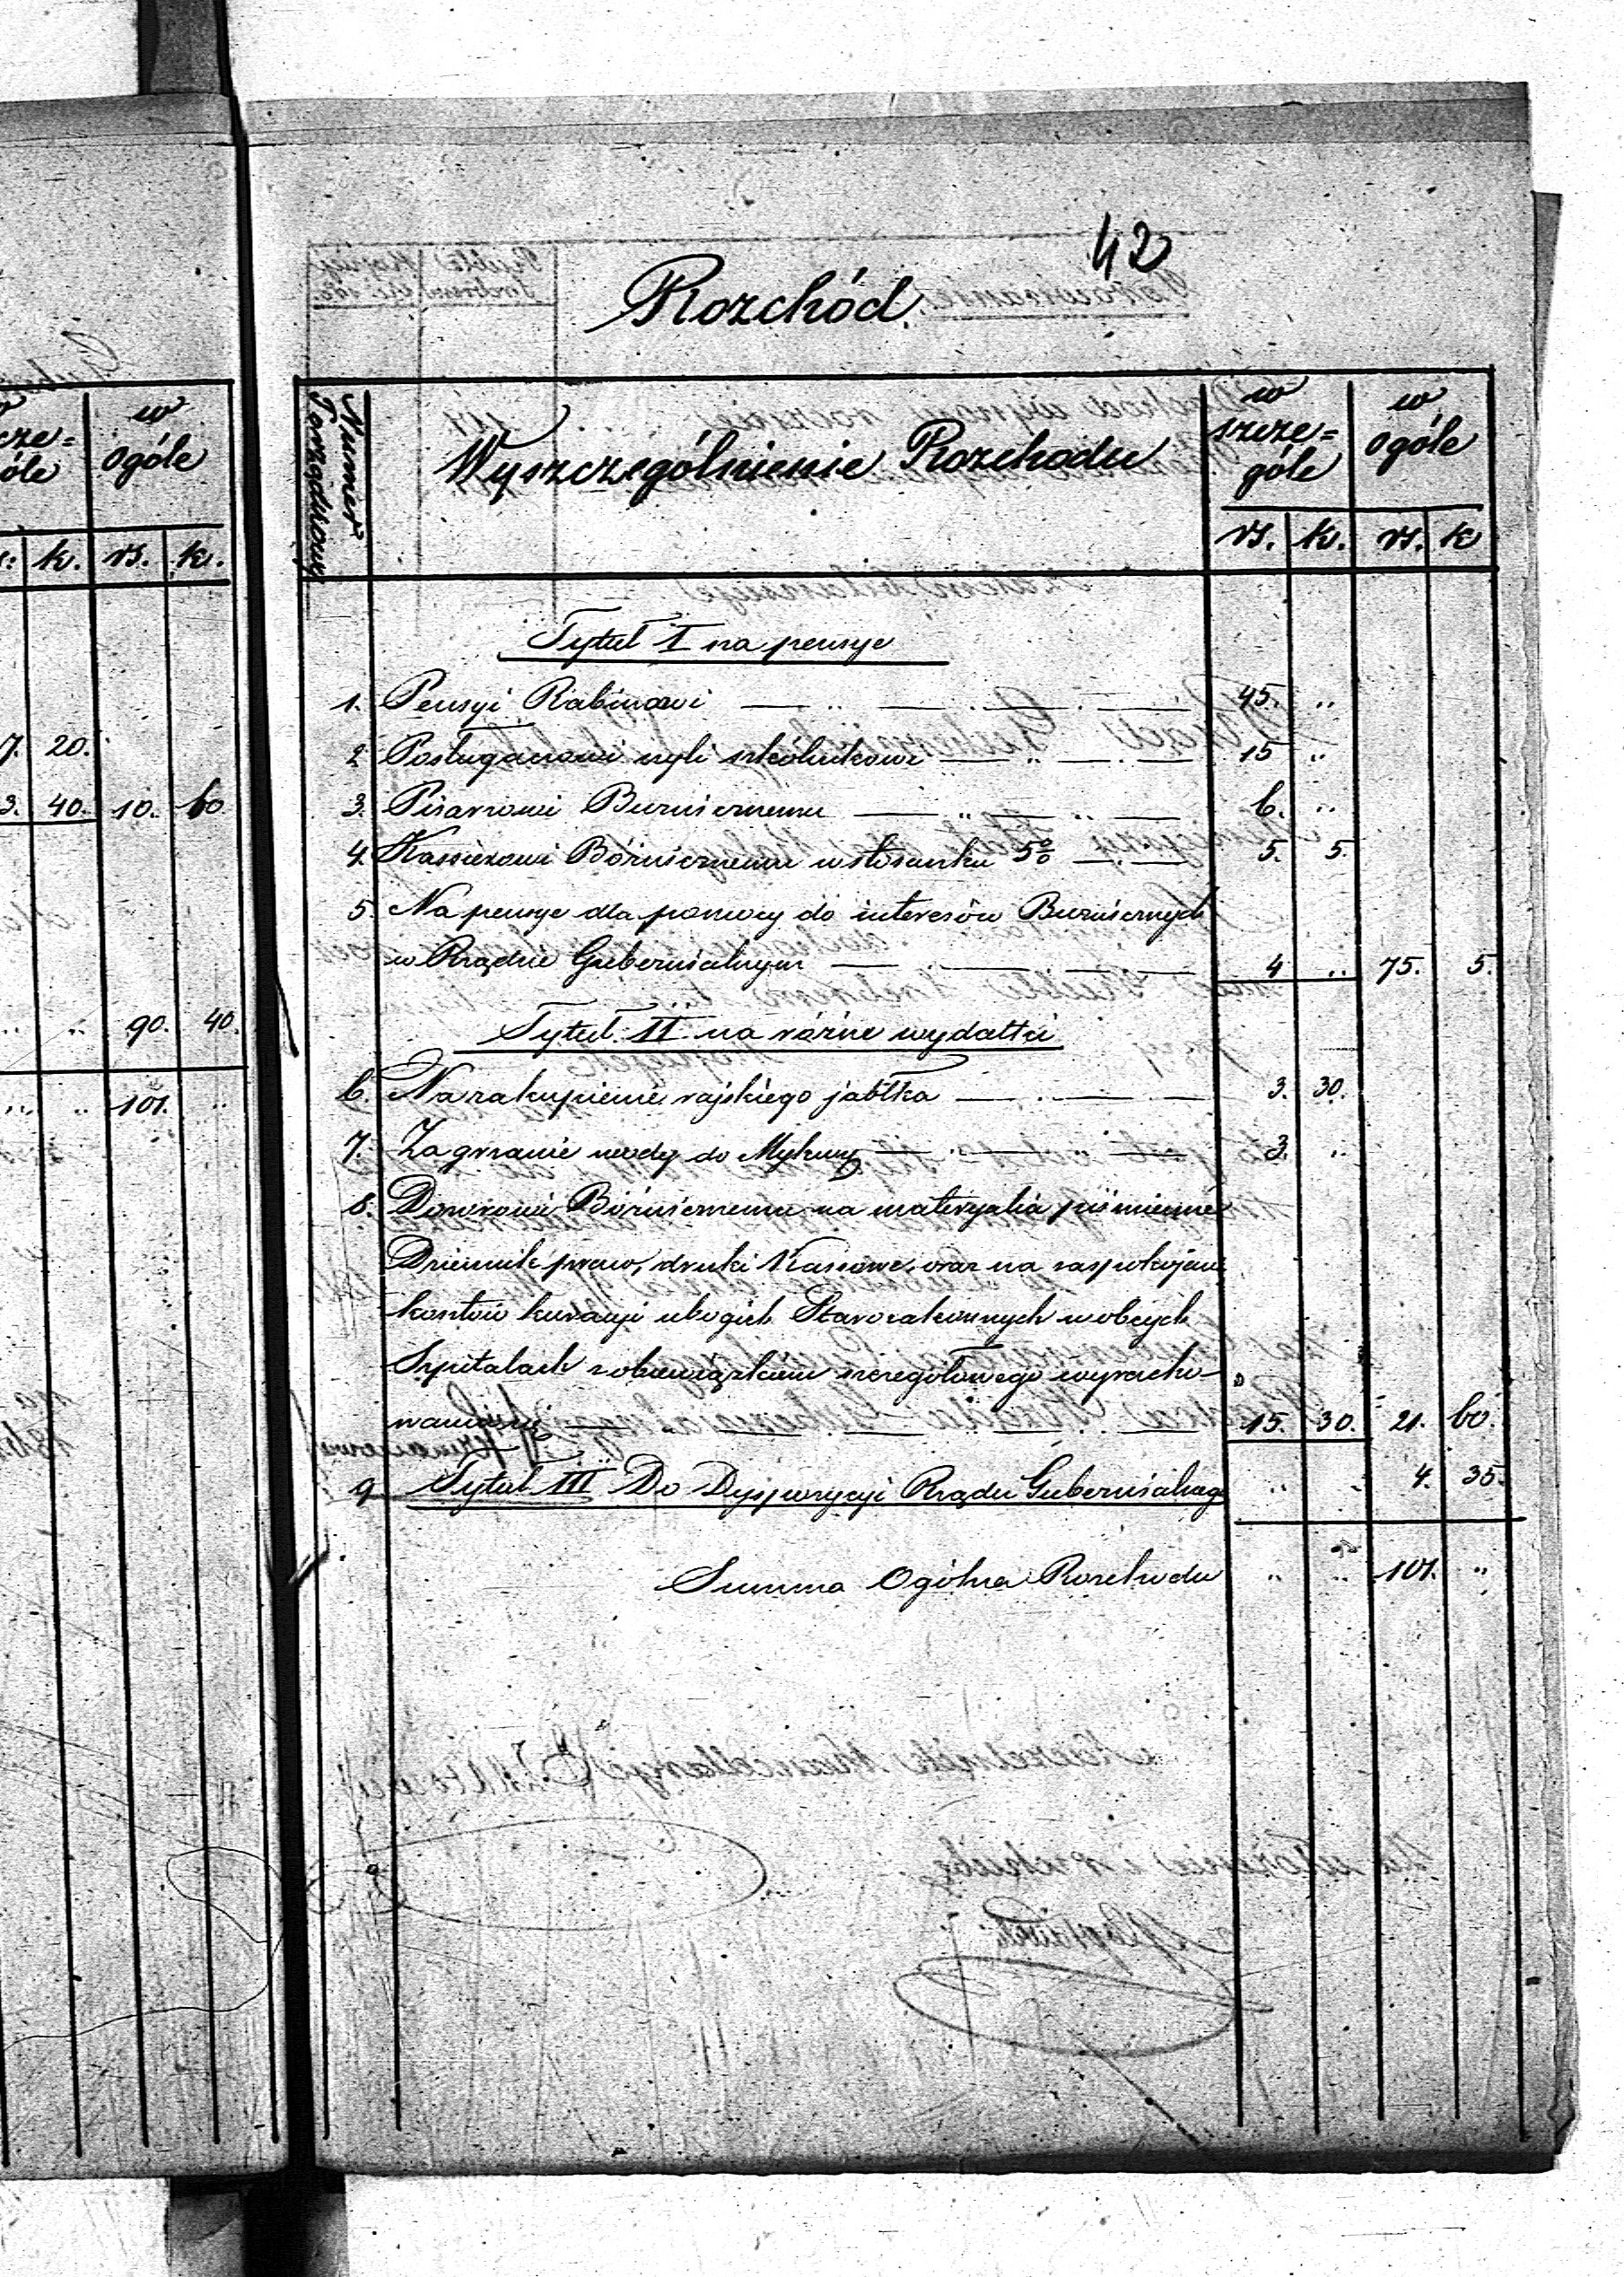 42
Rozchód.
Numer Porządkowy
Wyszczególnienie Rozchodu
w szcze=
góle
w
ogóle
rs. k. rs. k
Tytuł I na pensye
1. Pensyi Rabinowi 45. ..
2 Posługaczowi czyli szkólnikowi 15 ..
3. Pisarzowi Bużnicznemu 6. ..
4. Kassierowi Bóżnicznemu w stosunku 5% 5. 5.
5. Na pensye dla pomocy do interesów Bużnicznych
w Rządzie Gubernialnym 4 .. 75. 5.
Tytuł II na różne wydatki
6. Na zakupienie rajskiego jabłka 3. 30.
7. Za grzanie wody do Mykwy 3. ..
8. Dozorowi Bóżnicznemu na materyalia piśmienne
Dziennik praw, druki Kassowe, oraz na zaspokojenie
kosztów kuracyi ubogich Starozakonnych w obcych
Szpitalach z obowiązkiem szczegółowego wyracho-
wania się 15. 30. 21. 60.
9 Tytuł III Do Dyspozycyi Rządu Gubernialnego .. .. 4. 35.
Summa Ogólna Rozchodu .. .. 101. ..
cze=
óle
w
ogóle
k. rs. k.
7. 20.
3. 40. 10. 60
.. .. 90. 40.
.. .. 101. ..